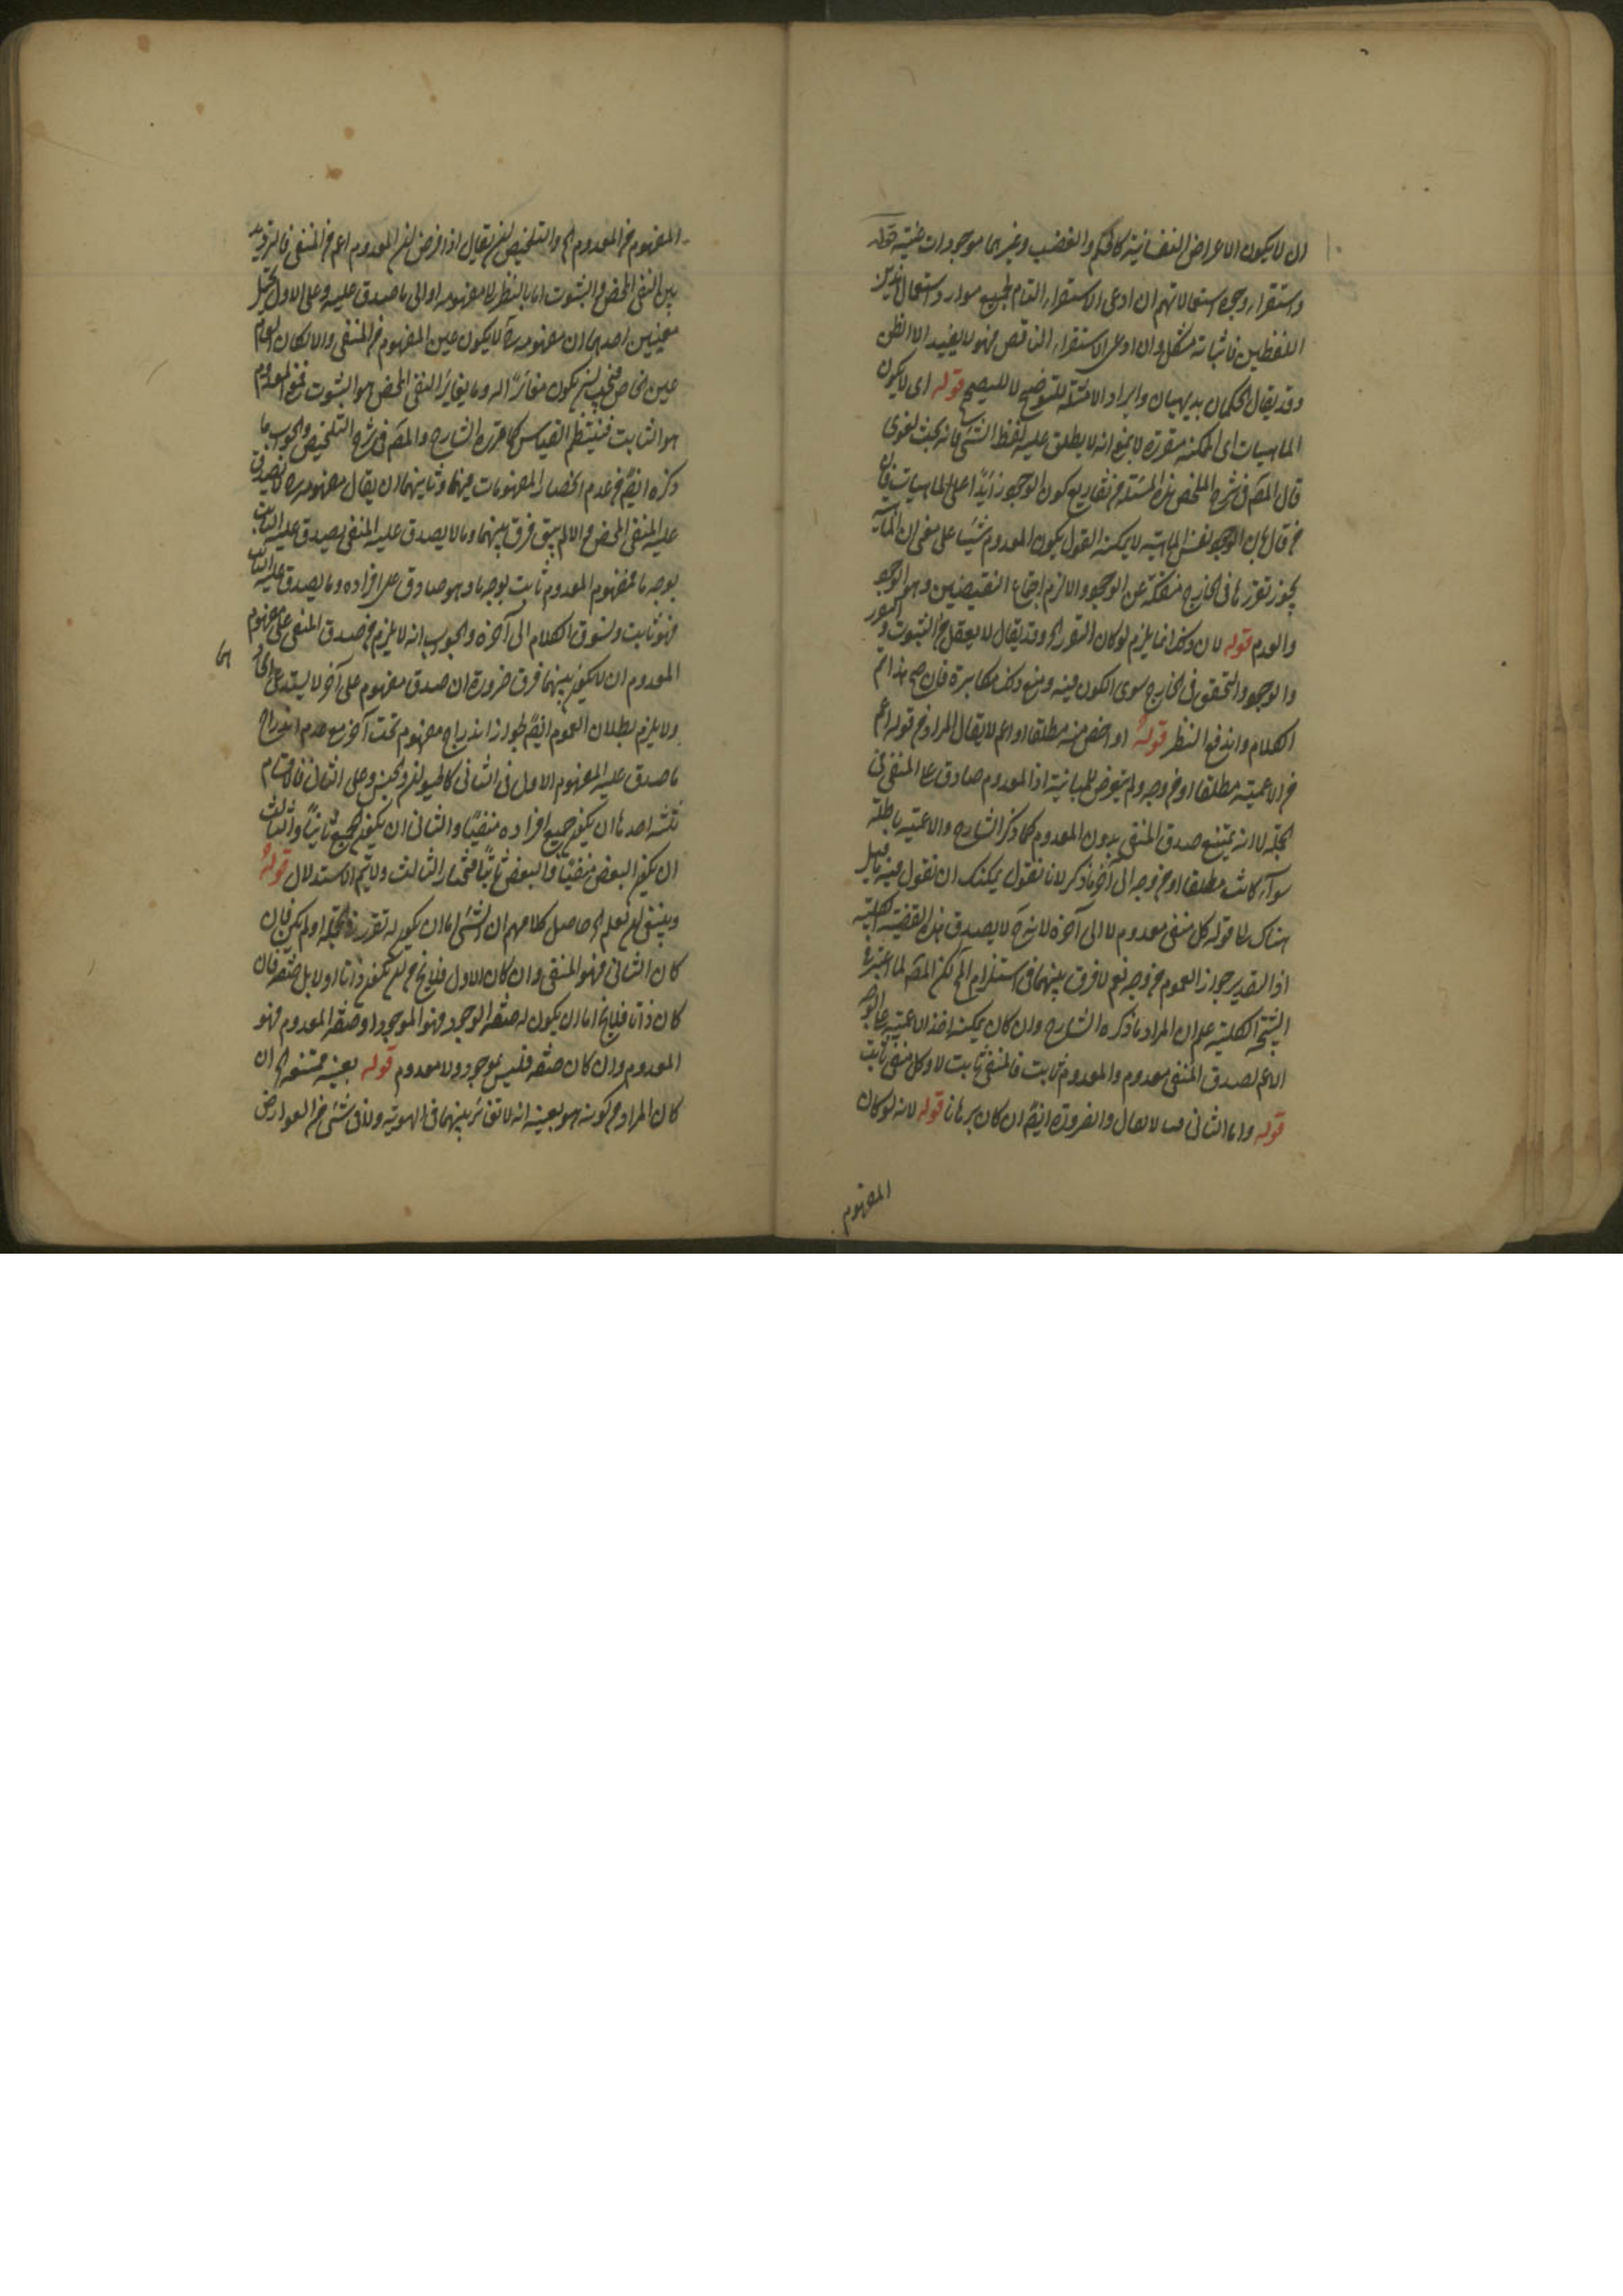 ان لا يكون الاعراض النفسانية كالحكم والغضب وغيرهما موجودات عينية قوله
واستقراء وجوه استعمالاتهم ان ادعى الاستقراء التام لجميع موارد استعمال هذين
اللفظين فاثباته مشكل وان ادعى الاستقراء الناقص فهو لا يفيد الا الظن
وقد يقال الحكمان بديهيان وايراد الامثلة للتوضيح لا للتصحيح قوله اى لا يكون
الماهيات اى الممكنة متقررة لا بمعنى انه لا يطلق عليه لفظ الشئ فانه بحث لغوى
قال المص فى شرح الملخص هذه المسئلة من تفاريع كون الوجود زائدا على الماهيات فان
من قال بان الوجود نفس الماهية لا يمكنه القول بكون المعدوم شيئا على معنى ان الماهية
يجوز تقررها فى الخارج منفكة عن الوجود والا لزم اجتماع النقيضين وهو الوجود
والعدم قوله لان ذلك انما يلزم لو كان التقرر الخ وقد يقال لا يعقل من الثبوت و التقرر
والوجود والتحقق فى الخارج سوى الكون فيه ومنع ذلك مكابرة فان صح هذا تم
الكلام واندفع النظر قوله او اخص منه مطلقا او اعم لا يقال المراد من قوله اعم
من الاعمية مطلقا او من وجه ولم يتعرض للمباينة اذ المعدوم صادق على المنفى فى
الجملة لانه يمتنع صدق المنفى بدون المعدوم كما ذكر الشارح والاعمية باطلة
سواء كانت مطلقا او من وجه الى آخر ما ذكر لانا نقول يمكنك ان تقول فيه ما قيل
هناك لا قوله كل منفى معدوم لا الى آخره لانه ح لا يصدق هذه القضية كلية
اذ التقدير جواز العموم من وجه نعم لا فرق بينهما فى استلزام المح لكن المص لما اعتبر
النتيجة الكلية علم ان المراد ما ذكره الشارح وان كان يمكنه اخذ الاعمية على الوجه
الاعم لصدق المنفى معدوم والمعدوم ثابت فالمنفى ثابت لا وكل منفى ثابت
قوله واما الثانى لا يقال والضرورة ايضا ان كان برهانا قوله لانه لو كان
المفهوم
المفهوم من المعدوم الخ والتلخيص ان يقال اذا فرض ان المعدوم اعم من المنفى فالترديد
بين النفى المحض والثبوت اما بالنظر الى مفهومه او الى ما صدق عليه وعلى الاول يحتمل
معنيين احدهما ان مفهومه ح لا يكون عين المفهوم من المنفى والا لكان العام
عين الخاص فيجب ان يكون مغايرا له وما يغاير النفى المحض هو الثبوت فمفهوم المعدوم
هو الثابت فينتظم القياس كما قرره الشارح والمص فى شرح التلخيص والجواب ما
ذكره ايضا من عدم انحصار المفهومات فيهما وثانيهما ان يقال مفهومه ح لا يصدق
عليه المنفى المحض والا لم يبق فرق بينهما وما لا يصدق عليه المنفى يصدق عليه الثابت
بوجه ما فمفهوم المعدوم ثابت بوجه ما وهو صادق على افراده وما يصدق عليه الثابت
فهو ثابت ونسوق الكلام الى آخره والجواب انه لا يلزم من صدق المنفى على مفهوم
المعدوم ان لا يكون بينهما فرق ضرورة ان صدق مفهوم على آخر لا يستدعى
ولا يلزم بطلان العموم ايضا لجواز اندراج مفهوم تحت آخر مع عدم اندراج
ما صدق عليه المفهوم الاول فى الثانى كالحيوان والجنس وعلى الثانى فالاقسام
ثلثة احدها ان يكون جميع افراده منفيا والثانى ان يكون الجميع ثابتا والثالث
ان يكون البعض منفيا والبعض ثابتا فنختار الثالث ولا يتم الاستدلال قوله
وينبغى ان تعلم الخ حاصل كلامهم ان الشئ اما ان يكون له تقرر فى الجملة او لم يكن فان
كان الثانى فهو المنفى وان كان الاول فلا يخ من ان يكون ذاتا او لا بل صفة فان
كان ذاتا فلا يخ اما ان يكون له صفة الوجود فهو الموجود او صفة المعدوم فهو
المعدوم وان كان صفة فليس بموجود ولا معدوم قوله بعينه ممتنع الخ ان
كان المراد من كونه هو بعينه انه لا تغاير بينهما فى الهوية ولا فى شئ من العوارض